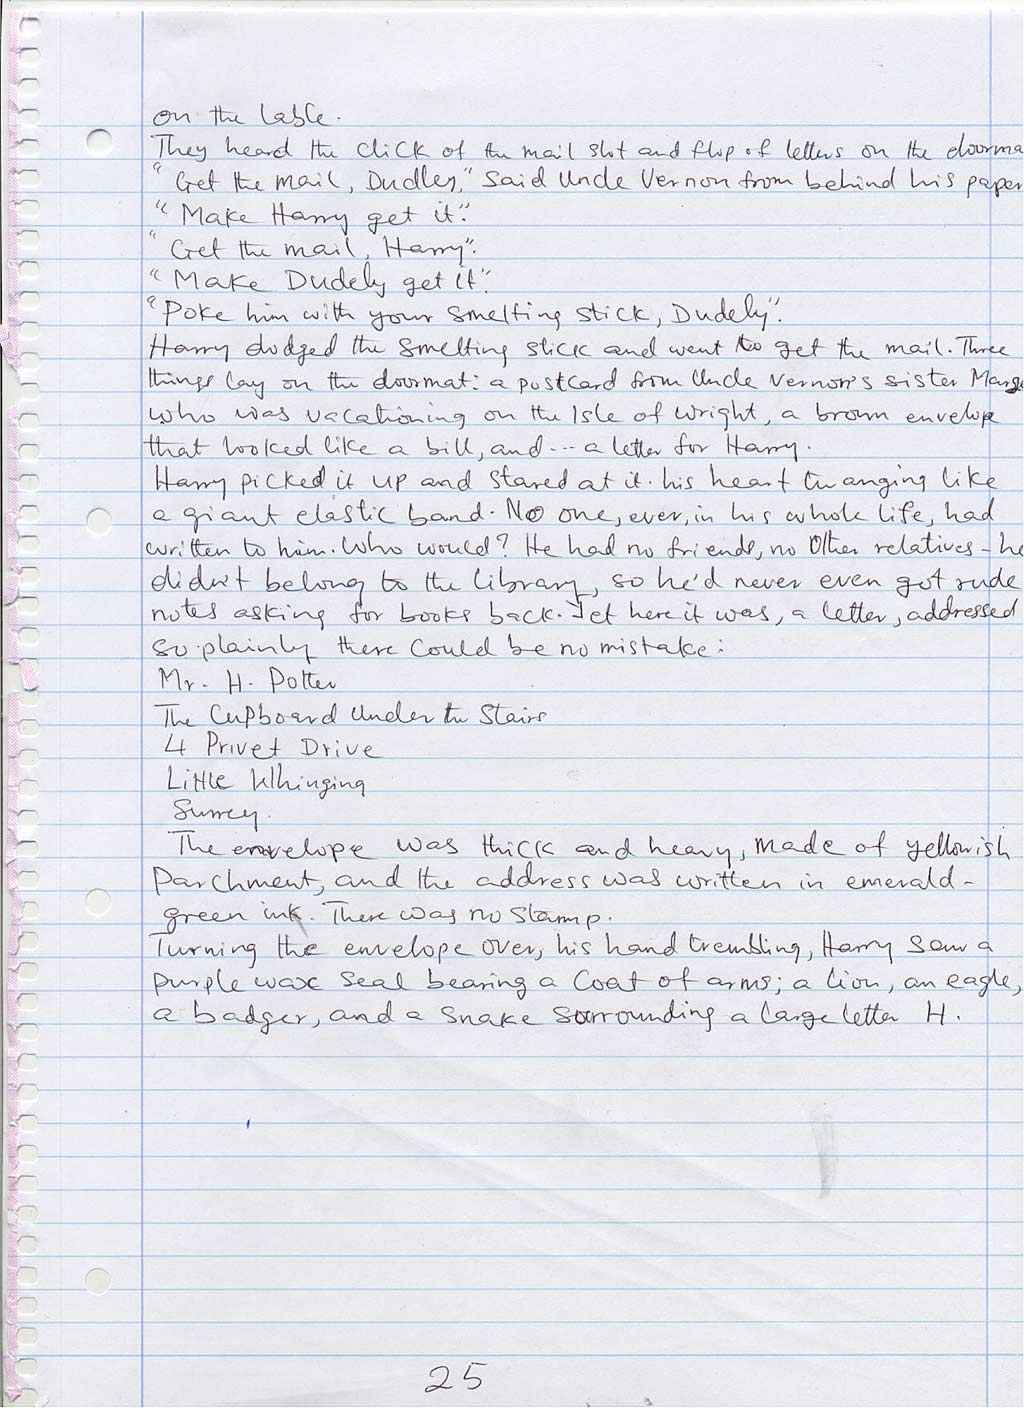 on the table.
They heard the click of the mail slot and flop of letters on the doorma
"Get the mail, Dudley," said Uncle Vernon from behind his paper
"Make Harry get it".
"Get the mail, Harry".
"Make Dudely get it".
"Poke him with your smelting stick, Dudely".
Harry dodged the smelting stick and went to get the mail. Three
things lay on the doormat: a postcard from Uncle Vernon's sister Marge
who was vacationing on the Isle of wright, a brown envelope
that looked like a bill, and --- a letter for Harry.
Harry picked it up and stared at it. his heart twanging like
a giant elastic band. No one, ever, in his whole life, had
written to him. Who would? He had no friends, no other relatives - he
didn't belong to the library, so he'd never even got rude
notes asking for books back. Yet here it was, a letter, addressed
so plainly there could be no mistake:
Mr. H. Potter
The Cupboard Under the Stairs
4 Privet Drive
Little Whinging
Surrey.
The envelope was thick and heavy, made of yellowish
Parchment, and the address was written in emerald-
green ink. There was no stamp.
Turning the envelope over, his hand trembling, Harry saw a
purple wax seal bearing a coat of arms; a lion, an eagle,
a badger, and a snake surrounding a large letter H.
25